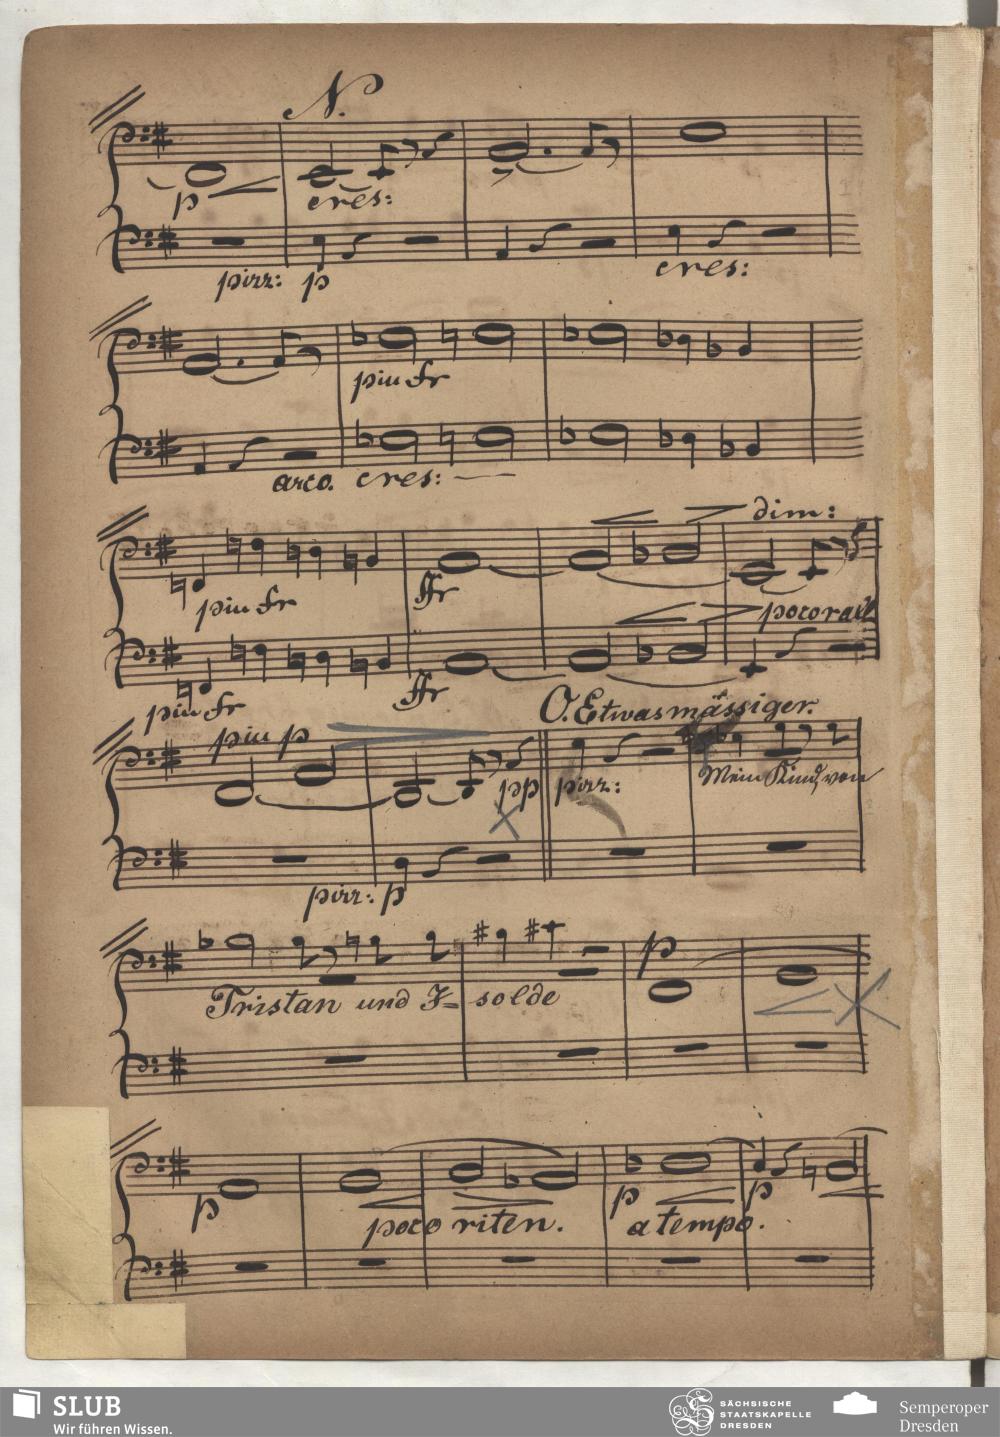 N.
p cres:
pizz: p cres:
piu fr
arco. cres:
dim:
piu fr ffr poco rall
piu fr ffr
O. Etwas mässiger.
piu p
pp pizz: Mein Kind, von
pizz: p
p
Tristan und I- solde
p p p
poco riten. a tempo.
SLUB
Wir führen Wissen.
SÄCHSISCHE
STAATSKAPELLE
DRESDEN
Semperoper
Dresden